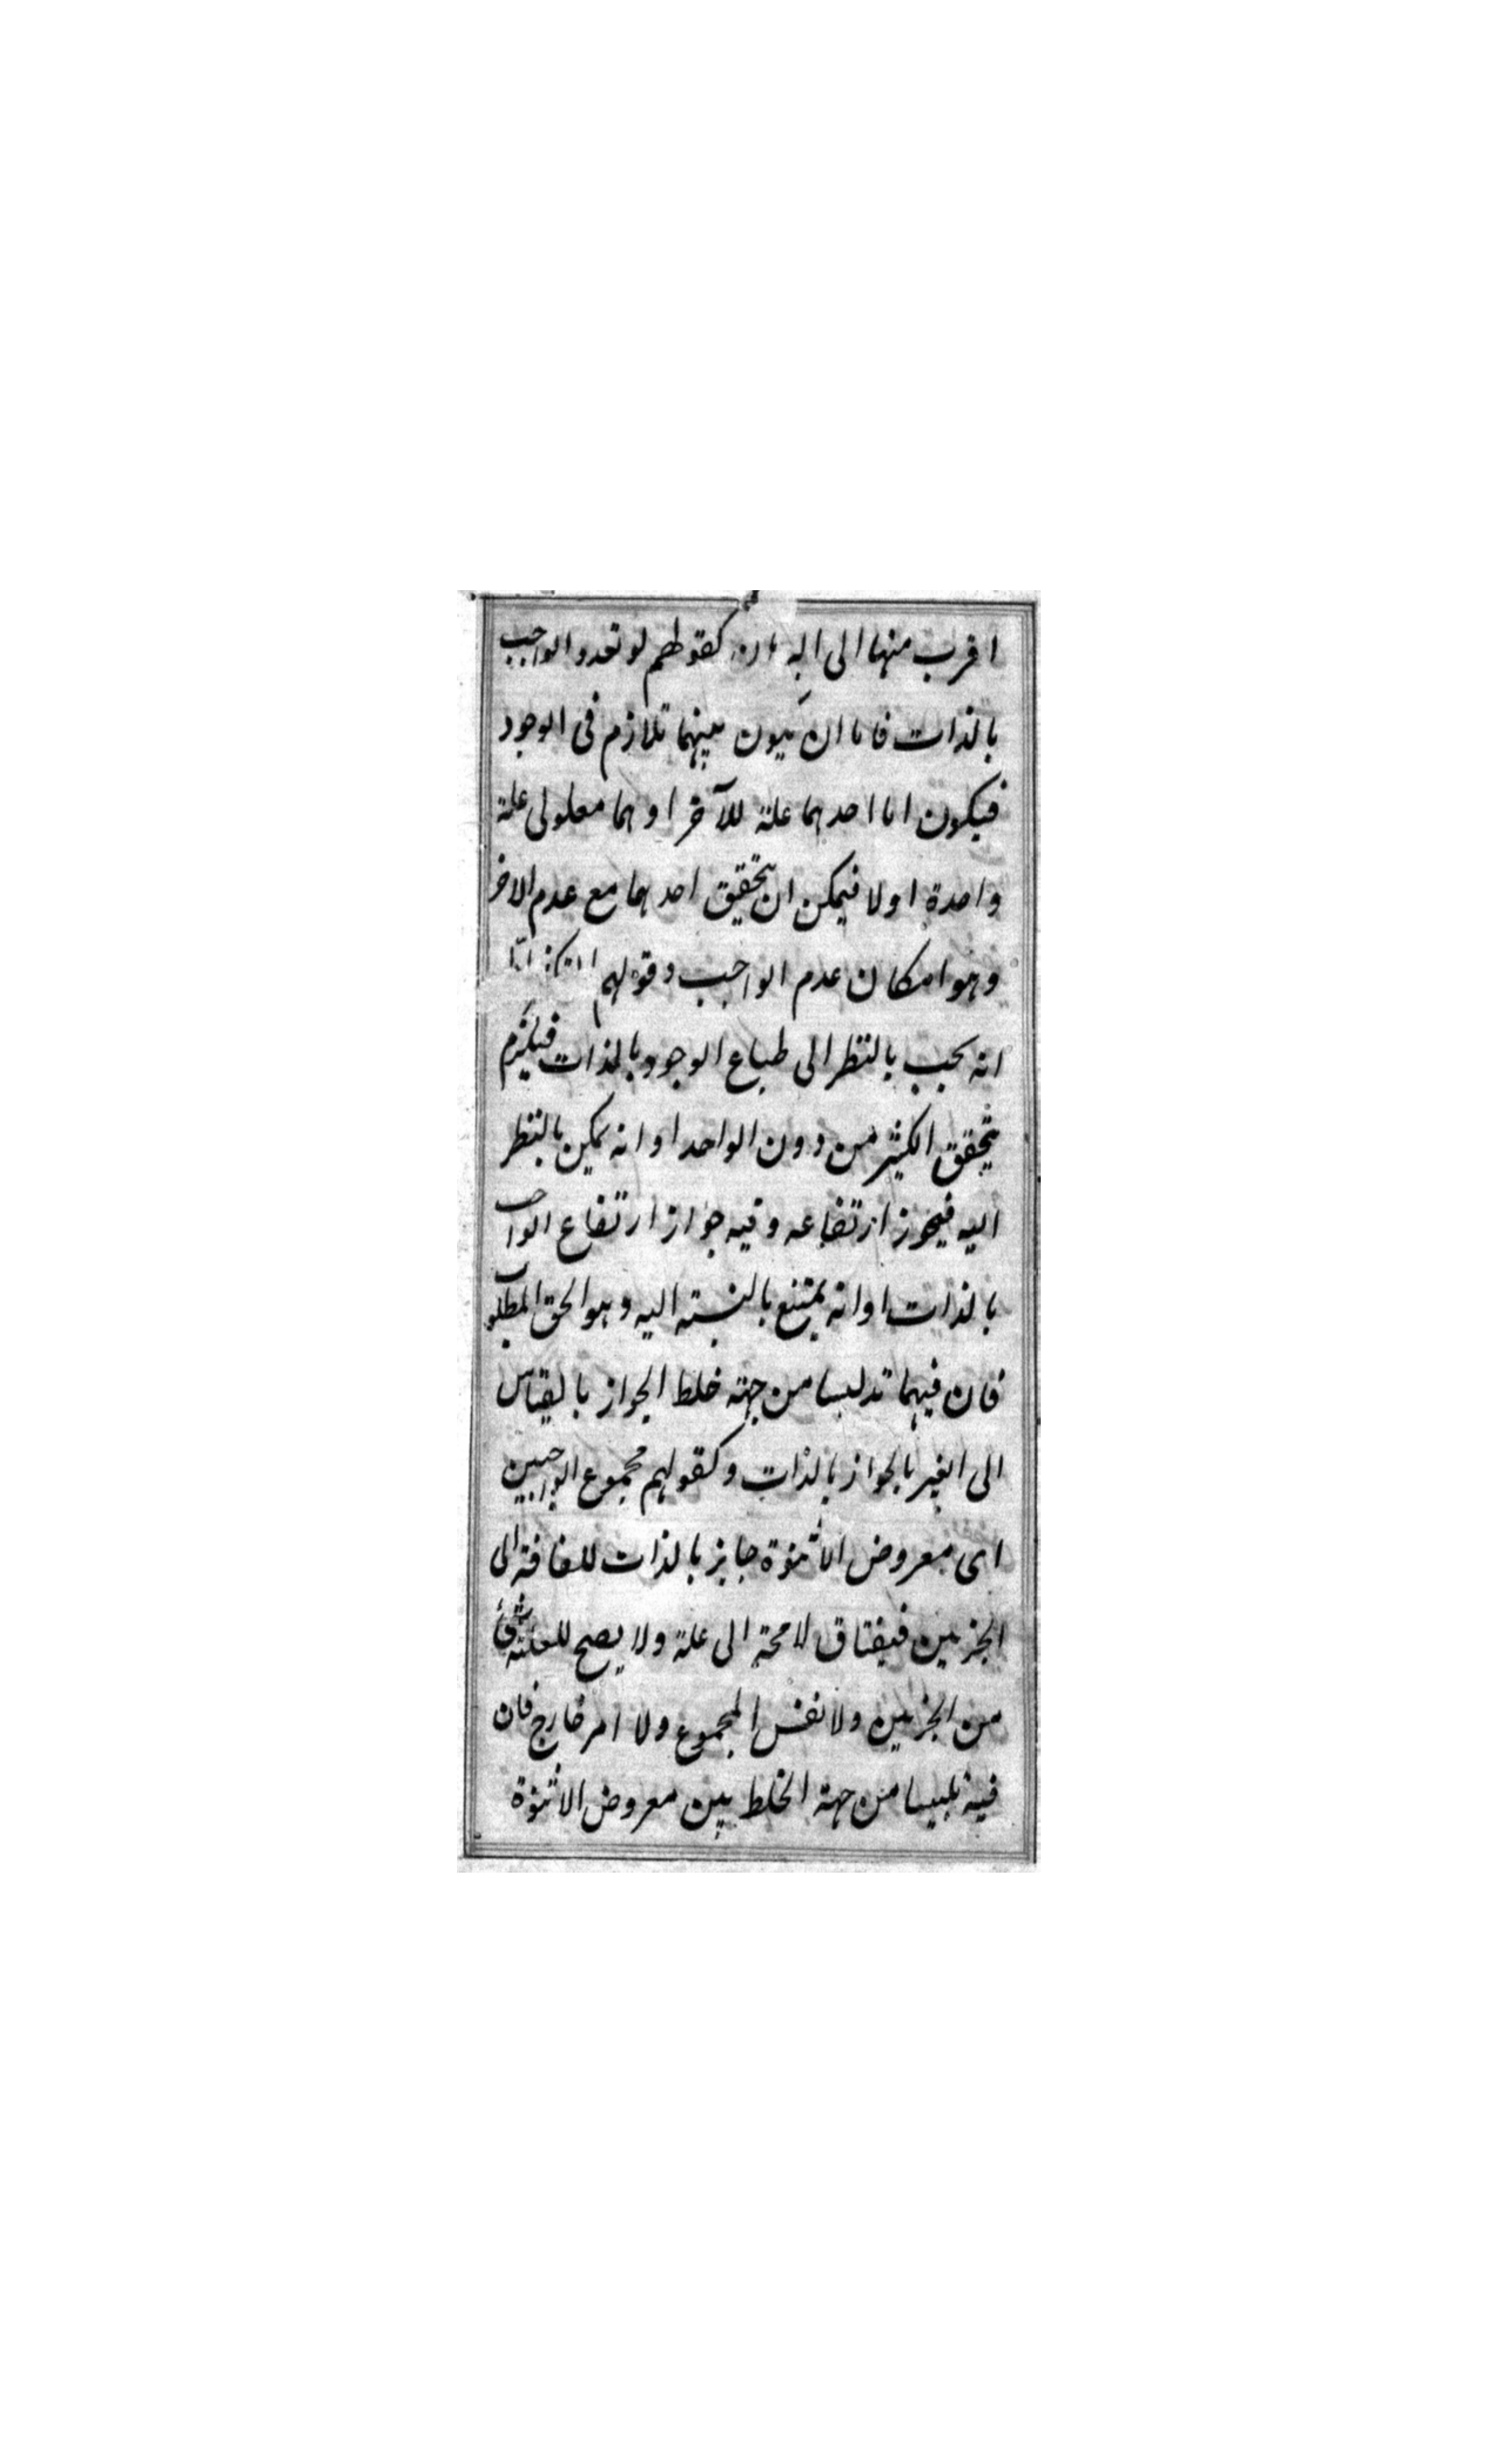 اقرب منها الى البرهان كقولهم لو تعدد الواجب
بالذات فاما ان يكون بينهما تلازم فى الوجود
فيكون اما احدهما علة للآخر او هما معلولى علة
واحدة او لا فيمكن ان يتحقق احدهما مع عدم الاخر
وهو امكان عدم الواجب وقولهم الكثرة اما
انه يجب بالنظر الى طباع الوجود بالذات فيلزم
تحقق الكثير من دون الواحد او انه يمكن بالنظر
اليه فيجوز ارتفاعه وفيه جواز ارتفاع الواجب
بالذات او انه يمتنع بالنسبته اليه وهو الحق المطلوب
فان فيهما تدليسا من جهته خلط الجواز بالقياس
الى الغير بالجواز بالذات وكقولهم مجموع الواجبين
اى معروض الاثنوة جايز بالذات للفاقة الى
الجزيين فيفتاق لا محة الى علة ولا يصح للعلية شئ
من الجزيين ولا نفس المجموع ولا امر خارج فان
فيه تلبيسا من جهة الخلط بين معروض الاثنوة